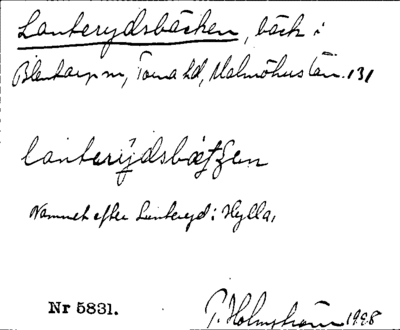 Lanterydsbäcken, bäck i
Blentarp sn, Torna hd, Malmöhus län. 131
lanterydsbæʃʒen
Namnet efter Lunteryd i Hylla,
Nr 5831.
P. Holmström 1928